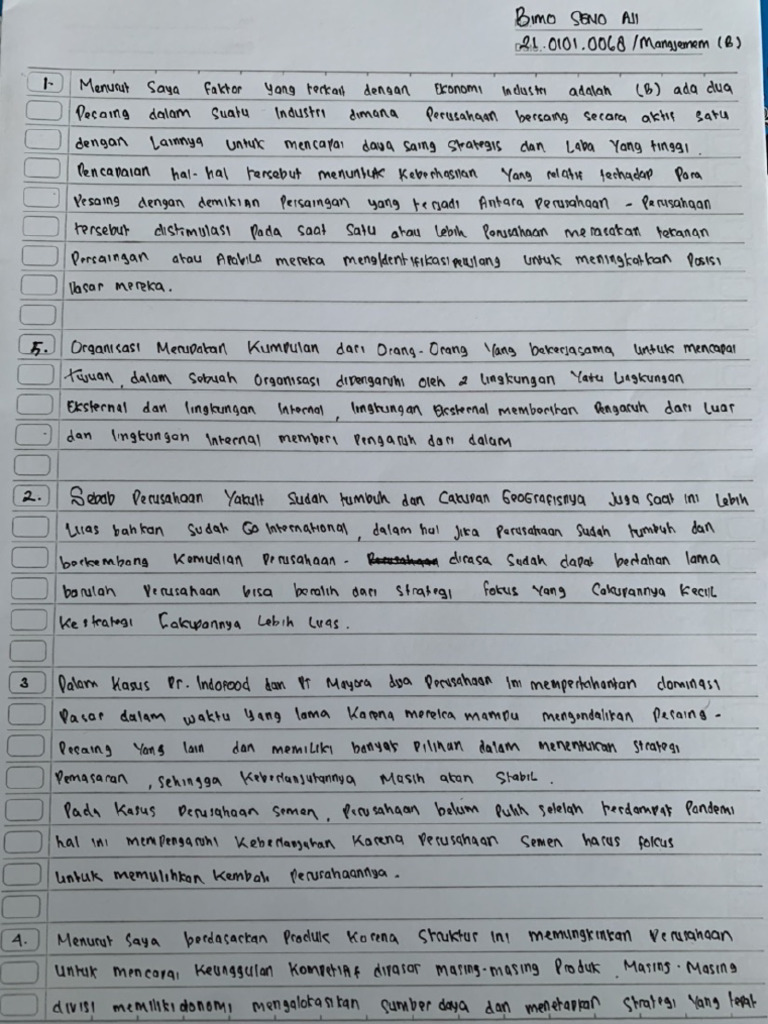 Bimo Seno Aji
21.0101.0068 / Manajemem (B)
1. Menurut Saya Faktor Yang terkait dengan Ekonomi Industri adalah (B) ada dua
Pesaing dalam Suatu Industri dimana Perusahaan bersaing secara aktif satu
dengan Lainnya untuk mencapai daya saing strategis dan Laba Yang tinggi.
Pencapaian hal-hal tersebut menuntuk Keberhasilan Yang relatif terhadap Para
Pesaing dengan demikian Persaingan yang terjadi Antara perusahaan - Perusahaan
tersebut distimulasi Pada saat Satu atau Lebih Perusahaan merasakan tekanan
Persaingan atau Apabila mereka mengidentifikasi peluang untuk meningkatkan Posisi
Pasar mereka.
5. Organisasi Merupakan Kumpulan dari Orang-Orang Yang bekerjasama, untuk mencapai
tujuan, dalam sebuah Organisasi dipengaruhi oleh 2 lingkungan Yatu Lingkungan
Eksternal dan lingkungan Internal, lingkungan Eksternal memberikan Pengaruh dari Luar
dan lingkungan Internal memberi Pengaruh dari dalam
2. Sebab Perusahaan Yakult Sudah tumbuh dan Cakupan Geografisnya Juga saat ini Lebih
Luas bahkan Sudah Go International, dalam hal Jika Perusahaan Sudah tumbuh dan
berkembang Kemudian Perusahaan - dirasa Sudah dapat bertahan lama
barulah Perusahaan bisa beralih dari Strategi fokus Yang Cakupannya Kecil
Ke strategi Cakupannya Lebih Luas.
3 Dalam Kasus Pt. Indofood dan Pt Mayora dua Perusahaan Ini mempertahankan dominasi
Pasar dalam waktu Yang lama Karena mereka mampu mengendalikan Pesaing -
Pesaing Yang lain dan memiliki banyak Pilihan dalam menentukan strategi
Pemasaran, sehingga Keberlanjutannya Masih akan Stabil.
Pada Kasus Perusahaan Semen, Perusahaan belum Pulih setelah terdampak Pandemi
hal ini mempengaruhi Keberlangsungan Karena Perusahaan Semen harus fokus
untuk memulihkan Kembali Perusahaannya.
4. Menurut Saya berdasarkan Produk Karena Struktur Ini memungkinkan Perusahaan
Untuk mencapai Keunggulan Kompetitif dipasar masing-masing Produk. Masing-Masing
divisi memiliki otonomi mengalokasikan Sumber daya dan menetapkan Strategi Yang tepat